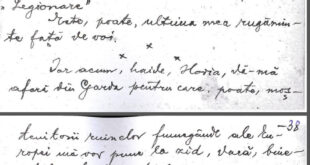 „Legionare”
Iată, poate, ultima mea rugămin-
te față de voi.
x x x
Iar acum, haide, Horia, dă-mă
afară din Garda pentru care, poate, moș-
-38
tenitorii ruinelor fumegând ale Eu-
ropei mă vor pune la zid, vară, bine-